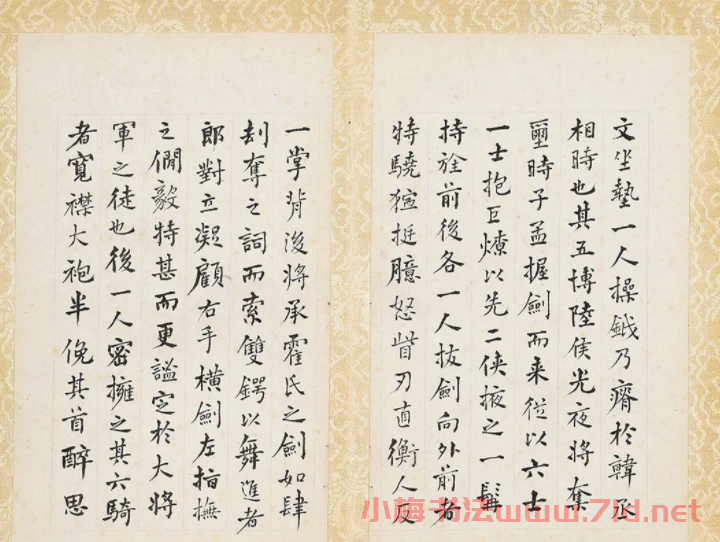 文坐墊一人操鉞乃瘠於韓丞
相時也其五博陸侯光夜將奪
璽時子孟握劍而来從以六士
一士抱巨燎以先二俠掖之一髯
持旌前後各一人拔劍向外前者
特驍猛挺臆怒眥刃直衡人反
一掌背後將承霍氏之劍如肆
刦奪之詞而索雙鍔以舞進者
郎對立凝顧右手橫劍左指撫
之僩毅特甚而更謐定於大將
軍之徒也後一人密擁之其六騎
者寬襟大袍半俛其首醉思
小梅书法www.7ld.net